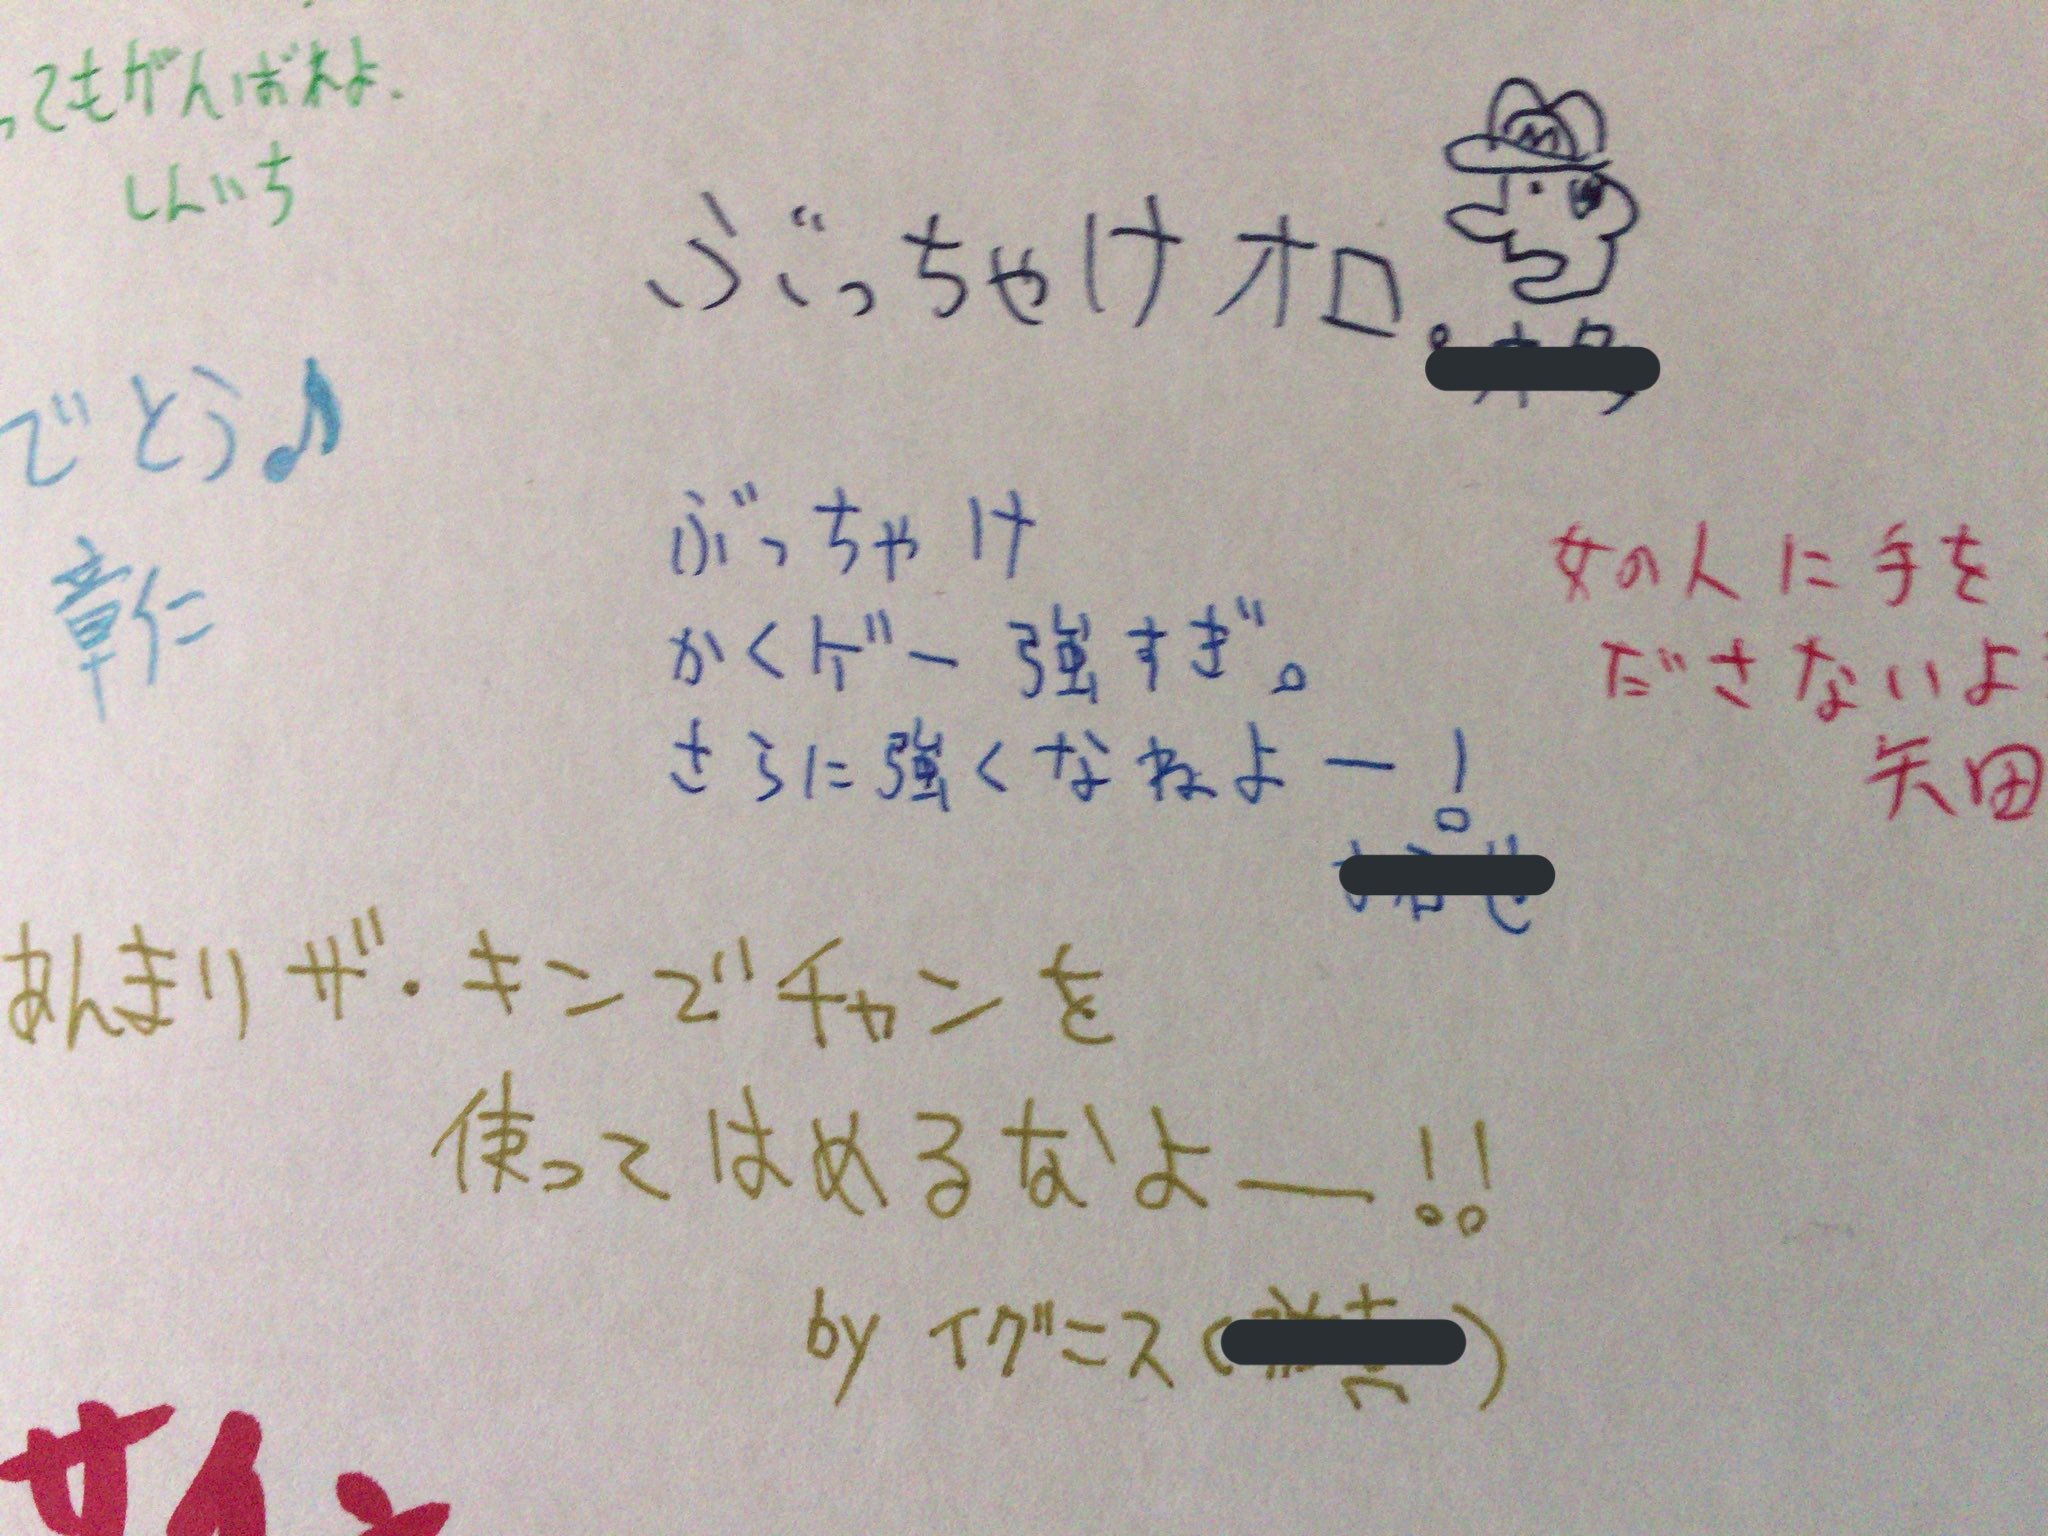 ってもがんばれよ.
しんいち
でとう♪
章仁
M
ぶっちゃけオロ。
ぶっちゃけ
かくゲー強すぎ。
さらに強くなねよー!
女の人に手を
ださないよ
矢田
あんまりザ・キンでチャンを
使ってはめるなよー!!
by イグニス( )